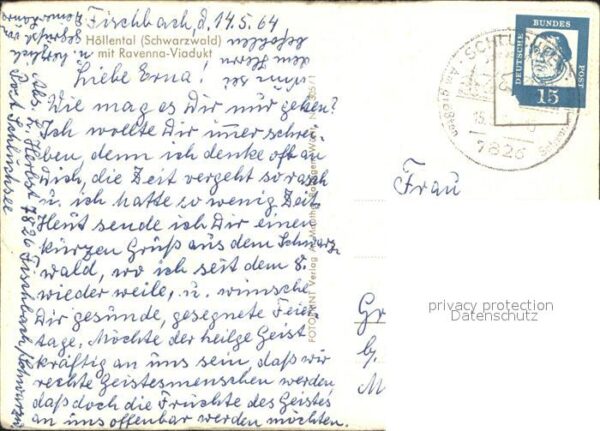 Fischbach, d. 14.5.64
Höllental (Schwarzwald)
mit Ravenna-Viadukt
Liebe Erna!
Wie mag es Dir nur gehen?
Ich wollte Dir immer schrei-
ben, denn ich denke oft an
Dich, die Zeit vergeht so rasch
u. ich hatte so wenig Zeit.
Heut sende ich Dir einen
kurzen Gruß aus dem Schwarz-
wald, wo ich seit dem 8.
wieder weile, u. wünsche
Dir gesunde, gesegnete Feier-
tage, Möchte der heilge Geist
kräftig an uns sein, daß wir
rechte Geistesmenschen werden
daß doch die Früchte des Geistes
an uns offenbar werden möchten.
Nun sei
dem Herrn
befohlen
u. herzlich
gegrüßt von
Abs. L. Herbst 7826 Fischbach/Schwarzw.
Post Schluchsee
FOTOPRINT Verlag
DEUTSCHE BUNDES POST
15
7826
Frau
Gr
b.
M
privacy protection
Datenschutz